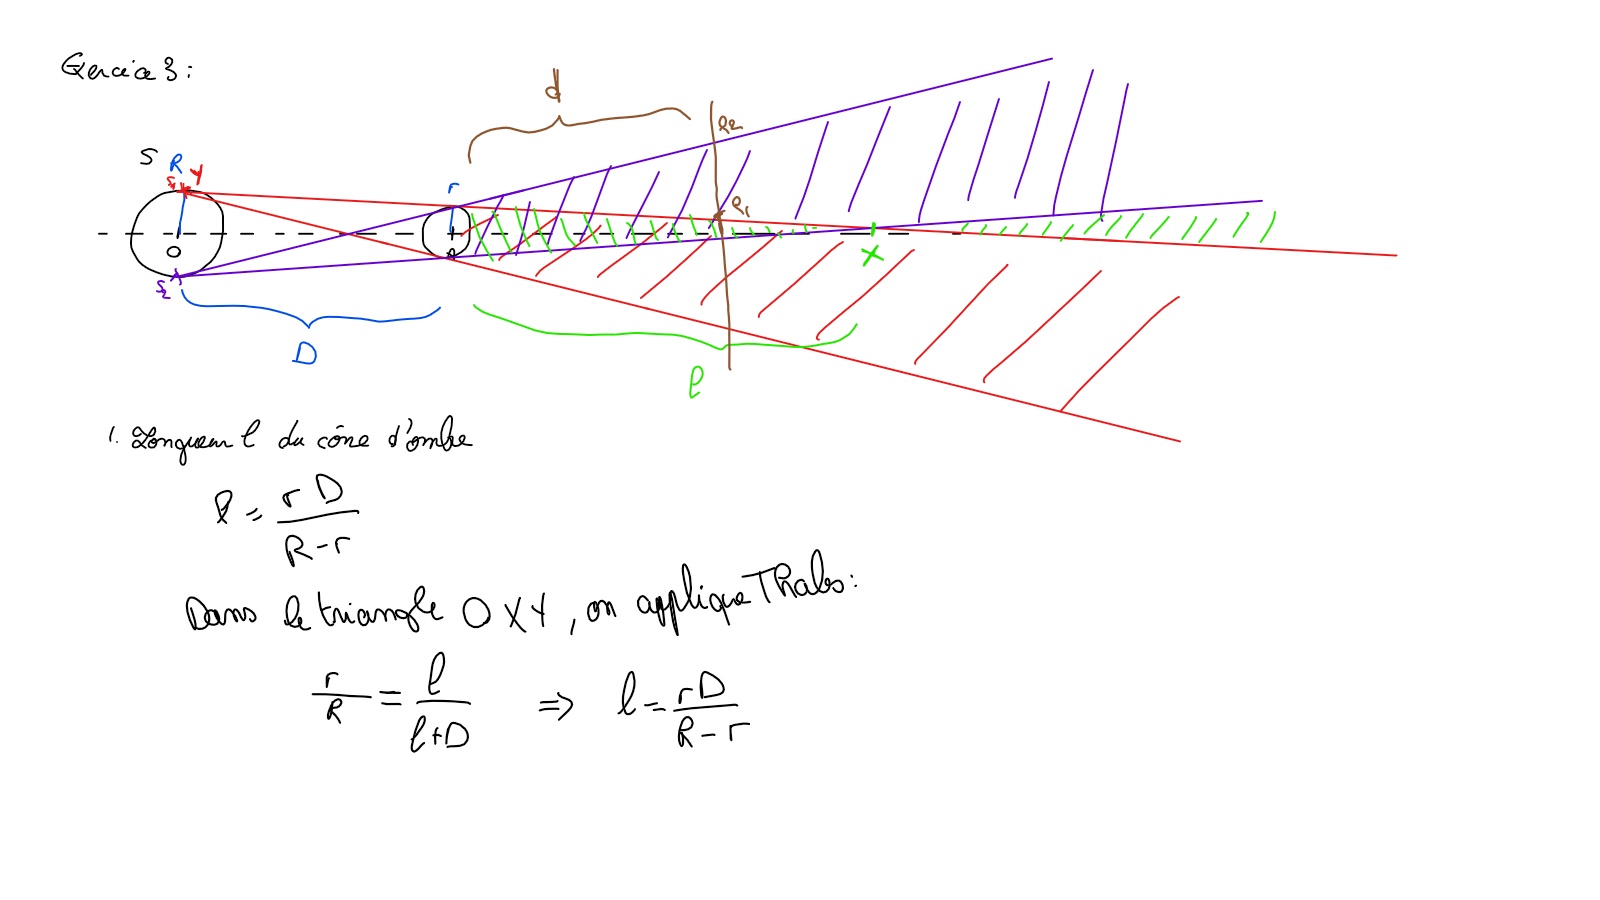 Exercice 3 :
d
S R Y
S₁
r
R₂
R₁
O
S₂
X
D
l
1. Longueur l du cône d'ombre
l = rD / (R - r)
Dans le triangle OXY, on applique Thalès :
r/R = l/(l+D) ⇒ l = rD/(R - r)